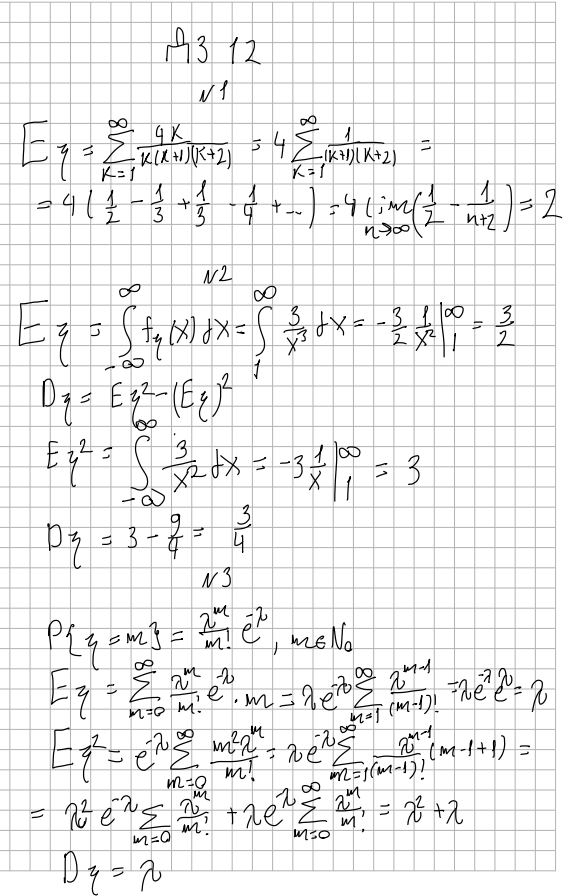 ДЗ 12
№1
Eη = ∑_{k=1}^{∞} \frac{4k}{k(k+1)(k+2)} = 4 ∑_{k=1}^{∞} \frac{1}{(k+1)(k+2)} =
= 4 ( \frac{1}{2} - \frac{1}{3} + \frac{1}{3} - \frac{1}{4} + ... ) = 4 lim_{n→∞} ( \frac{1}{2} - \frac{1}{n+2} ) = 2
№2
Eη = ∫_{-∞}^{∞} f_η(x) dx = ∫_{1}^{∞} \frac{3}{x^3} dx = -\frac{3}{2} \frac{1}{x^2} |_{1}^{∞} = \frac{3}{2}
Dη = Eη^2 - (Eη)^2
Eη^2 = ∫_{-∞}^{∞} \frac{3}{x^2} dx = -3 \frac{1}{x} |_{1}^{∞} = 3
Dη = 3 - \frac{9}{4} = \frac{3}{4}
№3
P{η = m} = \frac{λ^m}{m!} e^{-λ}, m∈N_0
Eη = ∑_{m=0}^{∞} \frac{λ^m}{m!} e^{-λ} · m = λe^{-λ} ∑_{m=1}^{∞} \frac{λ^{m-1}}{(m-1)!} = λe^{-λ}e^{λ} = λ
Eη^2 = e^{-λ} ∑_{m=0}^{∞} \frac{m^2 λ^m}{m!} = λe^{-λ} ∑_{m=1}^{∞} \frac{λ^{m-1}}{(m-1)!} (m-1+1) =
= λ^2 e^{-λ} ∑_{m=0} \frac{λ^m}{m!} + λe^{-λ} ∑_{m=0}^{∞} \frac{λ^m}{m!} = λ^2 + λ
Dη = λ